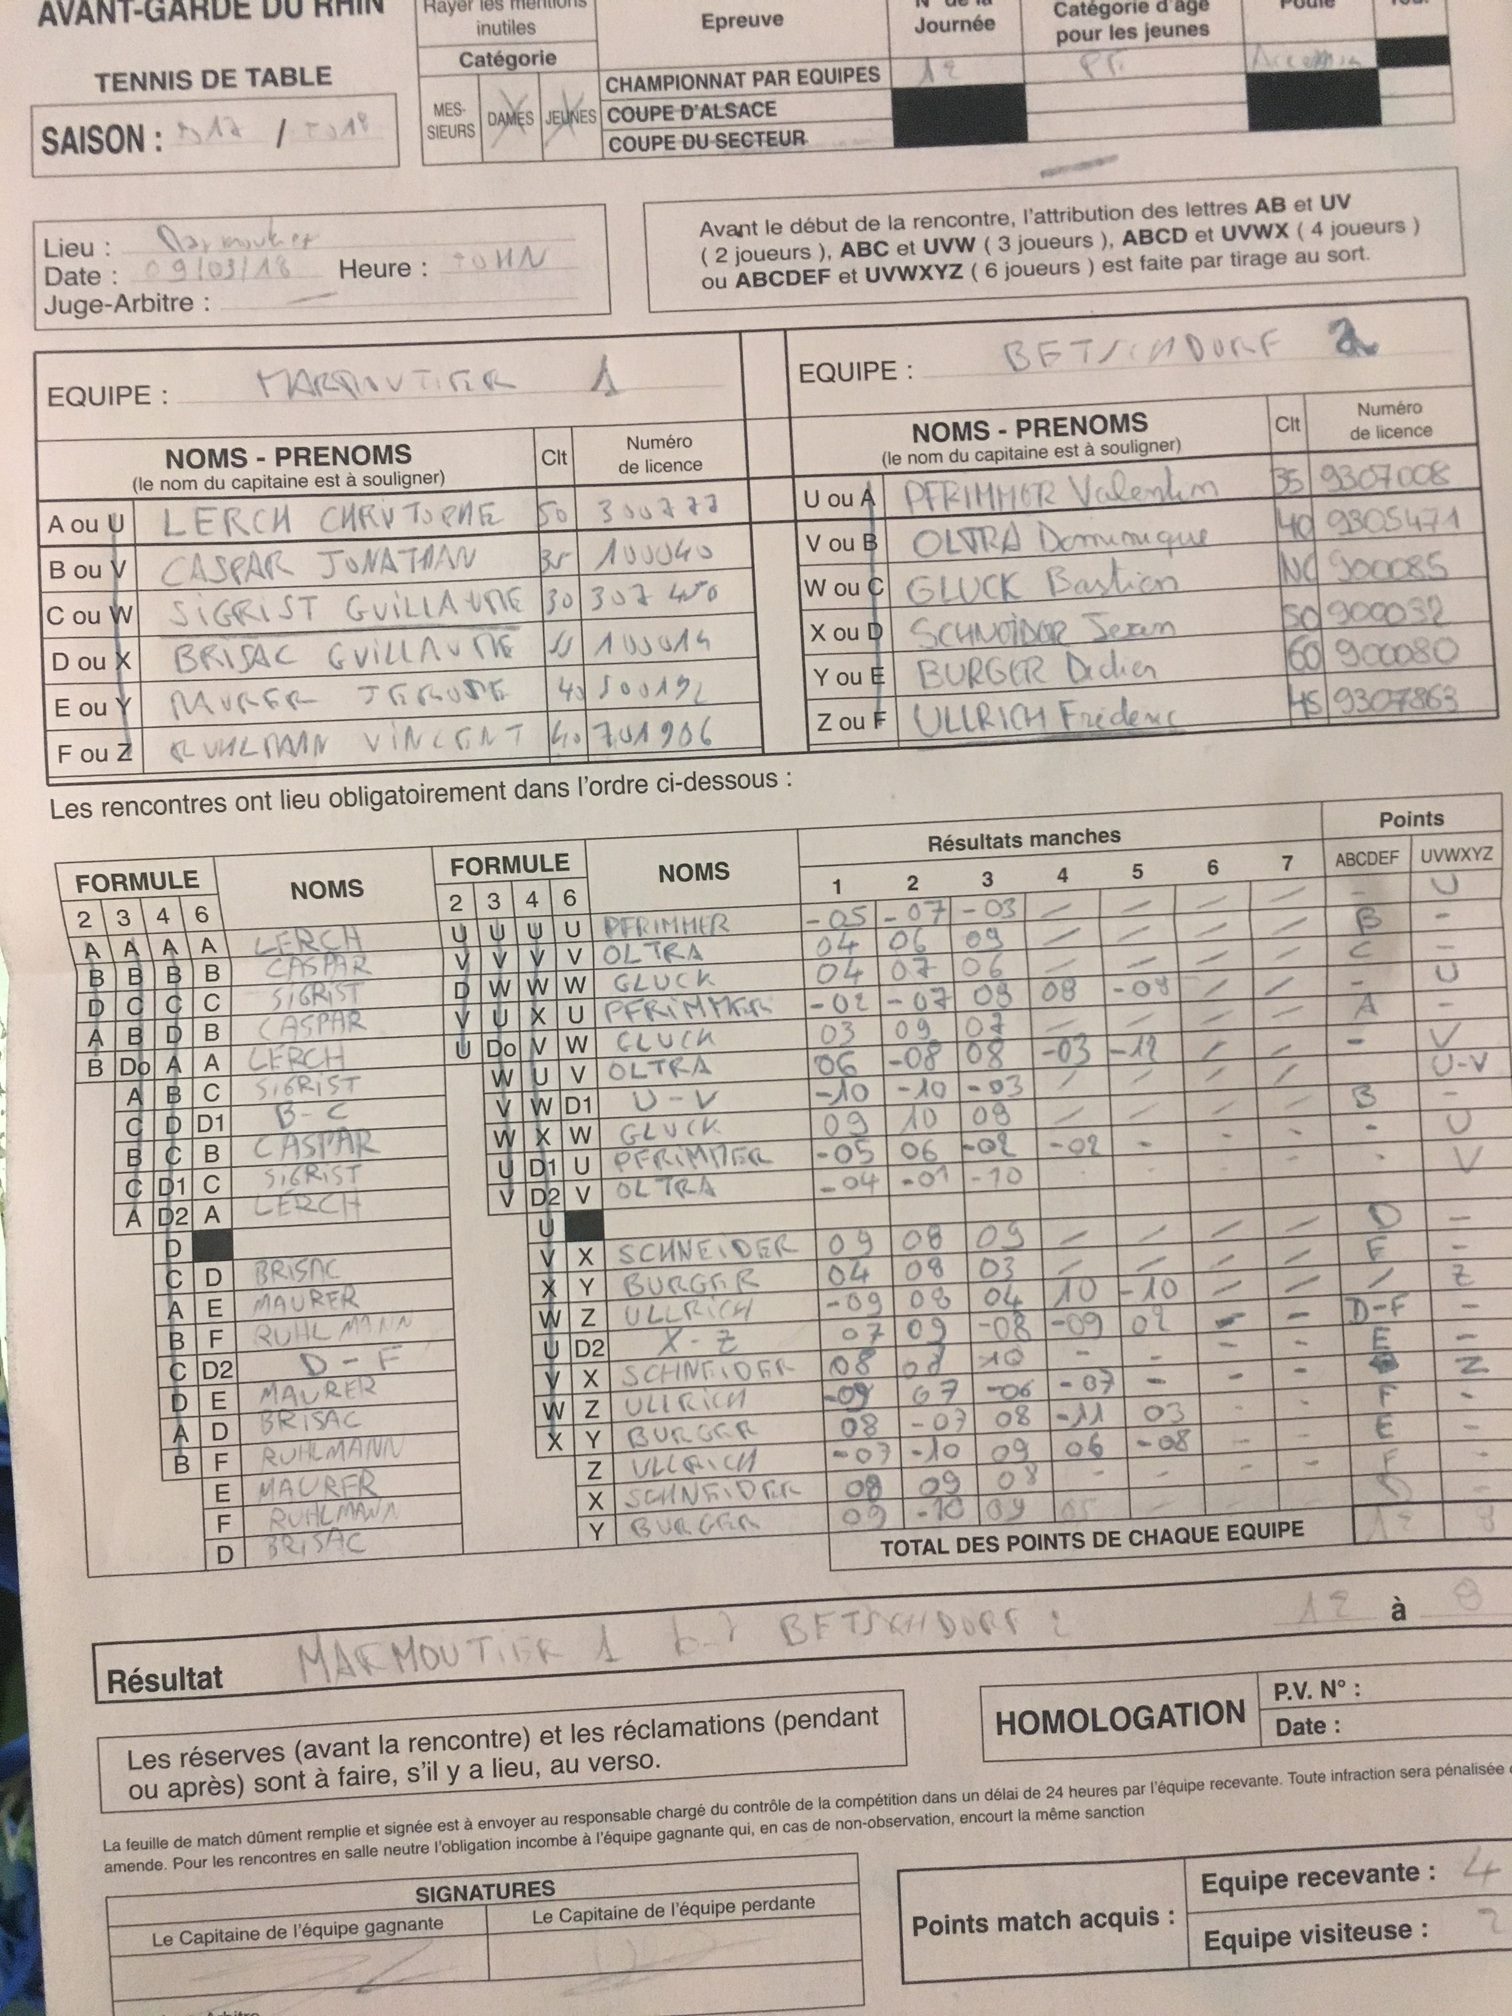 AVANT-GARDE DU RHIN
TENNIS DE TABLE
SAISON : /
Rayer les mentions inutiles
Catégorie
MES-SIEURS DAMES JEUNES
Epreuve
N° de la Journée
Catégorie d'âge pour les jeunes
Poule
CHAMPIONNAT PAR EQUIPES 12
COUPE D'ALSACE
COUPE DU SECTEUR
Lieu : Marmoutier
Date : 09/03/18 Heure : 20H
Juge-Arbitre :
Avant le début de la rencontre, l'attribution des lettres AB et UV
( 2 joueurs ), ABC et UVW ( 3 joueurs ), ABCD et UVWX ( 4 joueurs )
ou ABCDEF et UVWXYZ ( 6 joueurs ) est faite par tirage au sort.
EQUIPE : MARMOUTIER 1
EQUIPE : BETSCHDORF 2
NOMS - PRENOMS Clt Numéro de licence
(le nom du capitaine est à souligner)
A ou U LERCH CHRISTOPHE 50
B ou V CASPAR JONATHAN 35 100040
C ou W SIGRIST GUILLAUME 30
D ou X BRISAC GUILLAUME 100014
E ou Y MAURER JEROME 40
F ou Z RUHLMANN VINCENT 40 701906
NOMS - PRENOMS Clt Numéro de licence
(le nom du capitaine est à souligner)
U ou A PFRIMMER Valentin 35 9307008
V ou B OLTRA Dominique 40 9305471
W ou C GLUCK Bastien NC 900085
X ou D SCHNEIDER Jean 50 900032
Y ou E BURGER Didier 60 900080
Z ou F ULLRICH Fréderic 45 9307863
Les rencontres ont lieu obligatoirement dans l'ordre ci-dessous :
FORMULE NOMS FORMULE NOMS Résultats manches Points
2 3 4 6 2 3 4 6 1 2 3 4 5 6 7 ABCDEF UVWXYZ
A A A A LERCH U U U U PFRIMMER -05 -07 -03 - U
B B B B CASPAR V V V V OLTRA 04 06 09 B -
D C C C SIGRIST D W W W GLUCK 04 07 06 C -
A B D B CASPAR V U X U PFRIMMER -02 -07 08 08 -08 - U
B Do A A LERCH U Do V W GLUCK 03 09 07 A -
A B C SIGRIST W U V OLTRA 06 -08 08 -03 -12 - V
C D D1 B-C V W D1 U-V -10 -10 -03 U-V
B C B CASPAR W X W GLUCK 09 10 08 B -
C D1 C SIGRIST U D1 U PFRIMMER -05 06 -02 -02 - U
A D2 A LERCH V D2 V OLTRA -04 -01 -10 - V
D U
C D BRISAC V X SCHNEIDER 09 08 09 D -
A E MAURER X Y BURGER 04 08 03 E -
B F RUHLMANN W Z ULLRICH -09 08 04 10 -10 / Z
C D2 D-F U D2 X-Z 07 09 -08 -09 02 D-F -
D E MAURER V X SCHNEIDER 08 08 10 E -
A D BRISAC W Z ULLRICH -09 07 -06 -07 Z
B F RUHLMANN X Y BURGER 08 -07 08 -11 03 F -
E MAURER Z ULLRICH -07 -10 09 06 -08 E -
F RUHLMANN X SCHNEIDER 08 09 08 F -
D BRISAC Y BURGER 09 -10 09 05 D -
TOTAL DES POINTS DE CHAQUE EQUIPE 12 8
Résultat MARMOUTIER 1 bat BETSCHDORF 2 12 à 8
Les réserves (avant la rencontre) et les réclamations (pendant
ou après) sont à faire, s'il y a lieu, au verso.
HOMOLOGATION
P.V. N° :
Date :
La feuille de match dûment remplie et signée est à envoyer au responsable chargé du contrôle de la compétition dans un délai de 24 heures par l'équipe recevante. Toute infraction sera pénalisée
amende. Pour les rencontres en salle neutre l'obligation incombe à l'équipe gagnante qui, en cas de non-observation, encourt la même sanction
SIGNATURES
Le Capitaine de l'équipe gagnante
Le Capitaine de l'équipe perdante
Points match acquis :
Equipe recevante : 4
Equipe visiteuse : 2